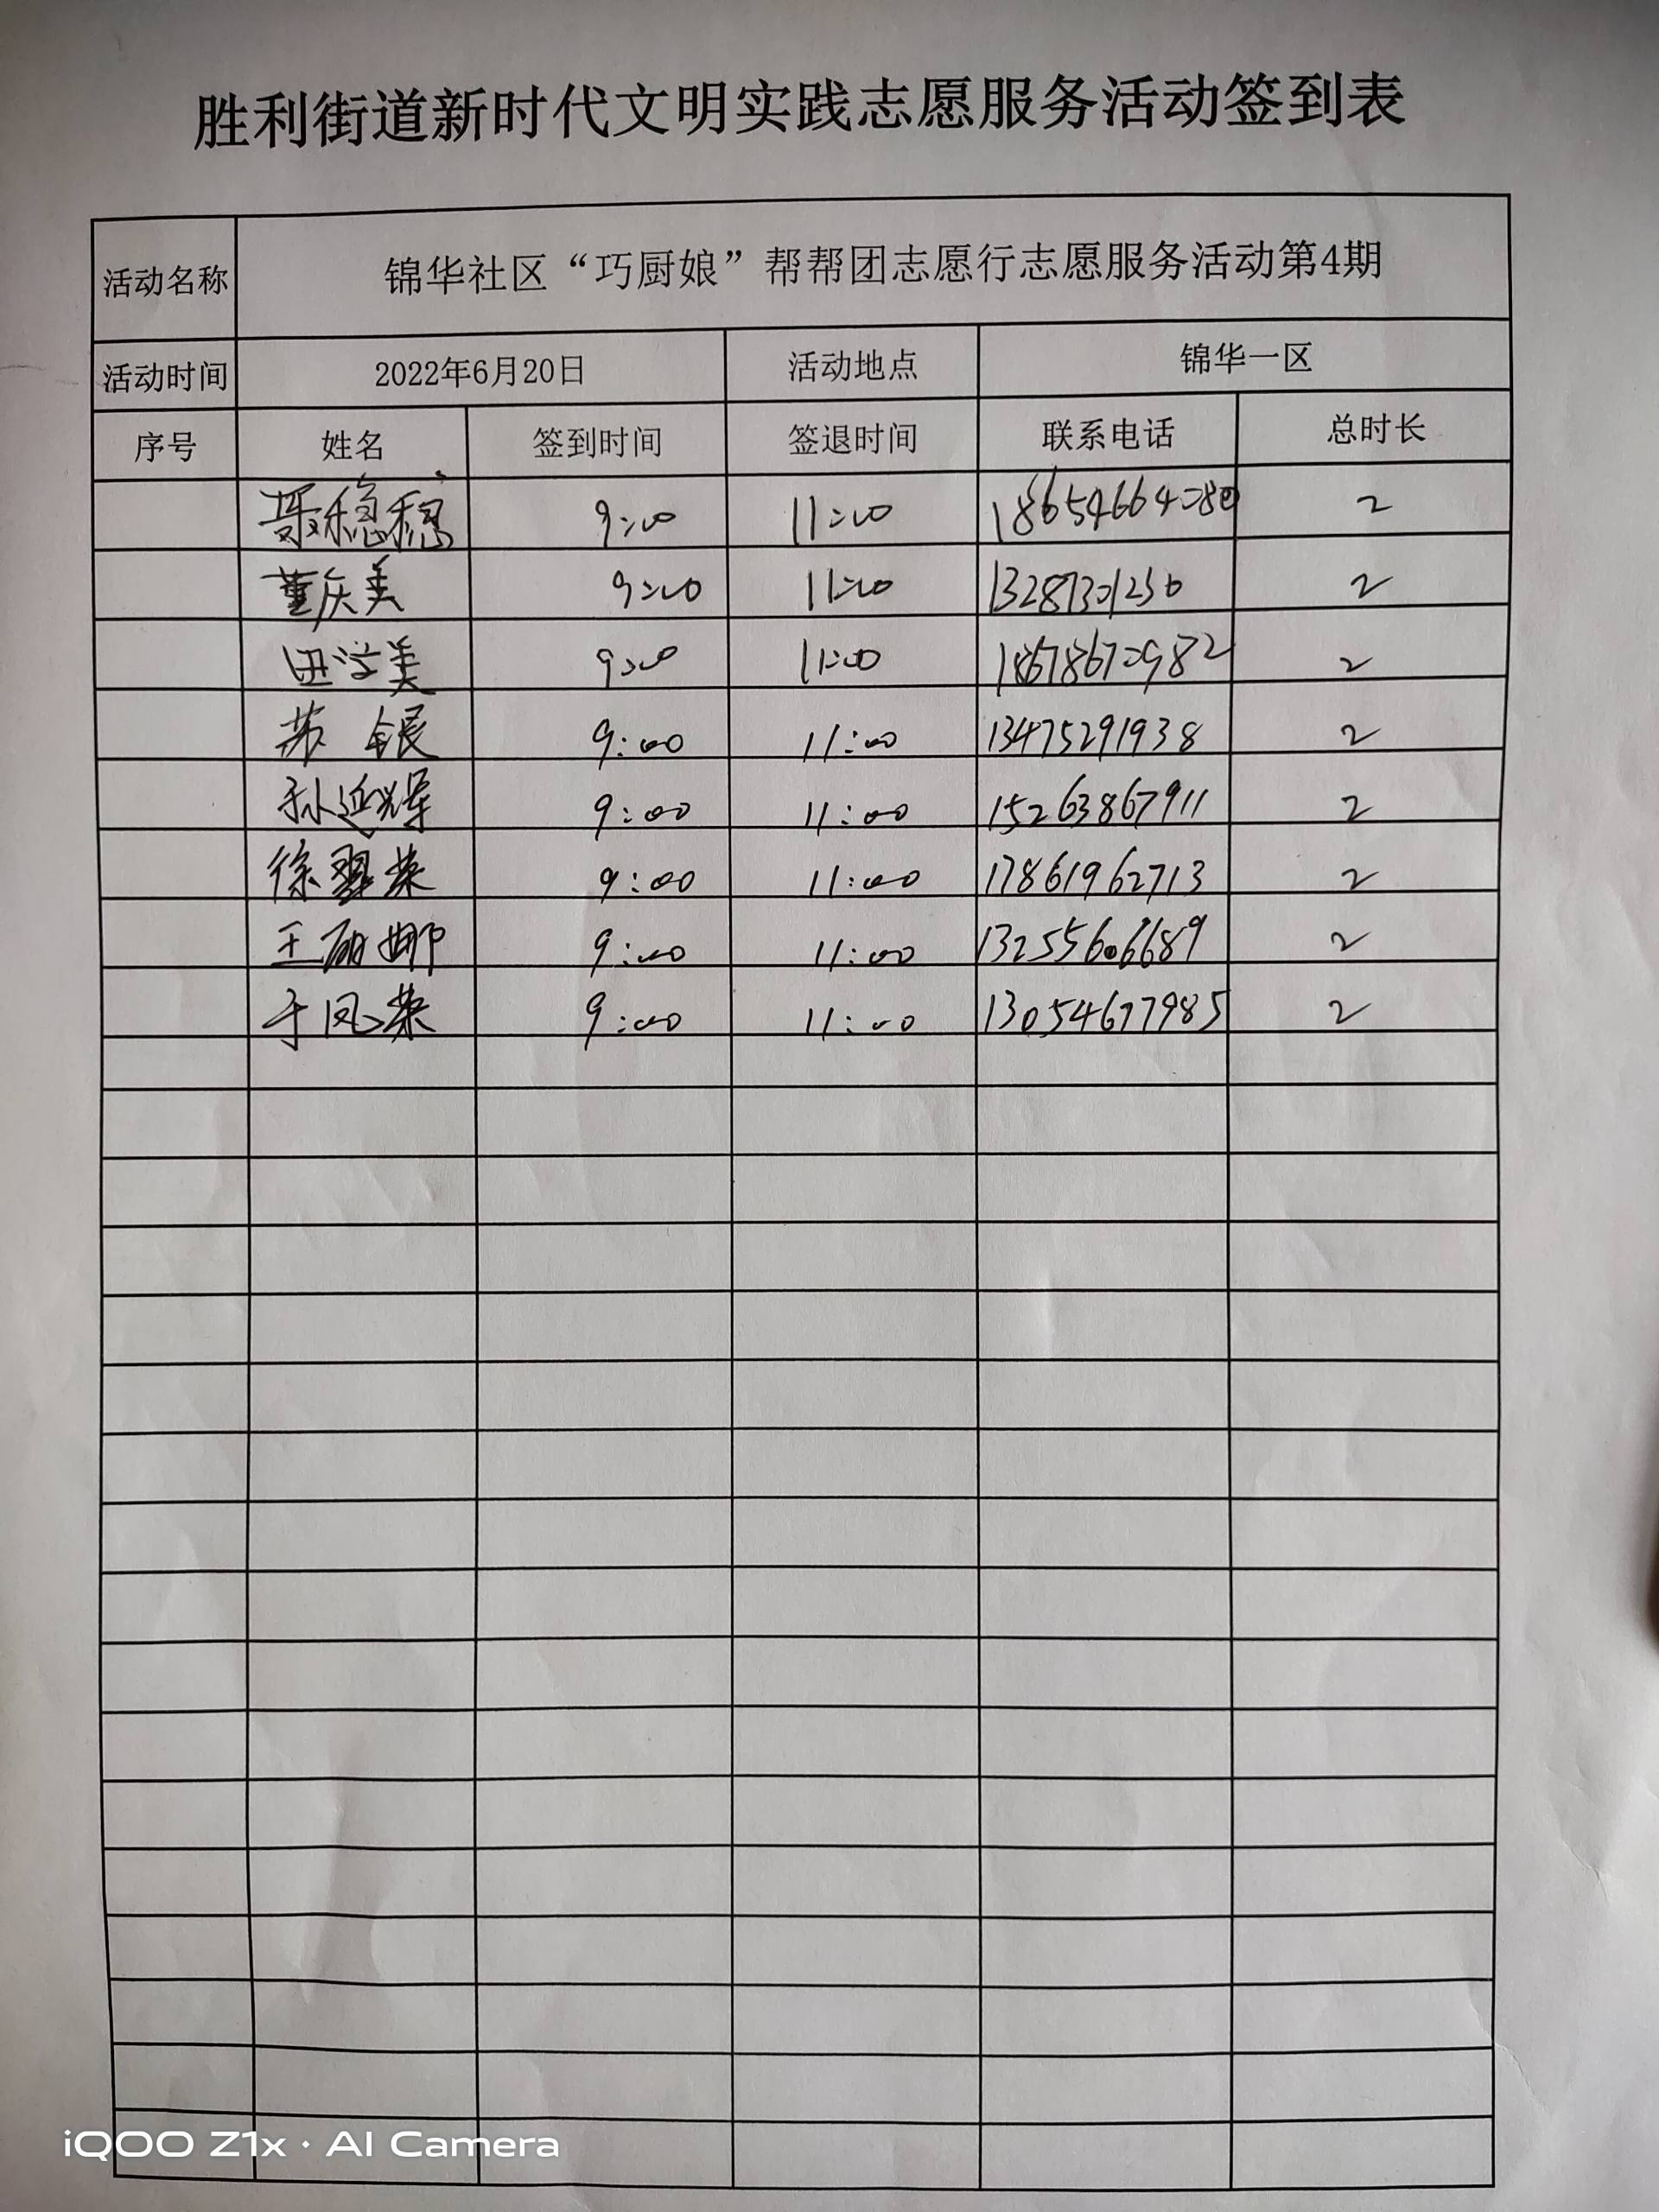 胜利街道新时代文明实践志愿服务活动签到表
活动名称 锦华社区“巧厨娘”帮帮团志愿行志愿服务活动第4期
活动时间 2022年6月20日 活动地点 锦华一区
序号 姓名 签到时间 签退时间 联系电话 总时长
聂稳稳 9:00 11:00 18654664080 2
董庆美 9:00 11:00 13287301230 2
田学美 9:00 11:00 18678670982 2
苏银 9:00 11:00 13475291938 2
孙延辉 9:00 11:00 15263867911 2
徐翠荣 9:00 11:00 17861962713 2
王丽娜 9:00 11:00 13255606689 2
于凤荣 9:00 11:00 13054677985 2
iQOO Z1x · AI Camera